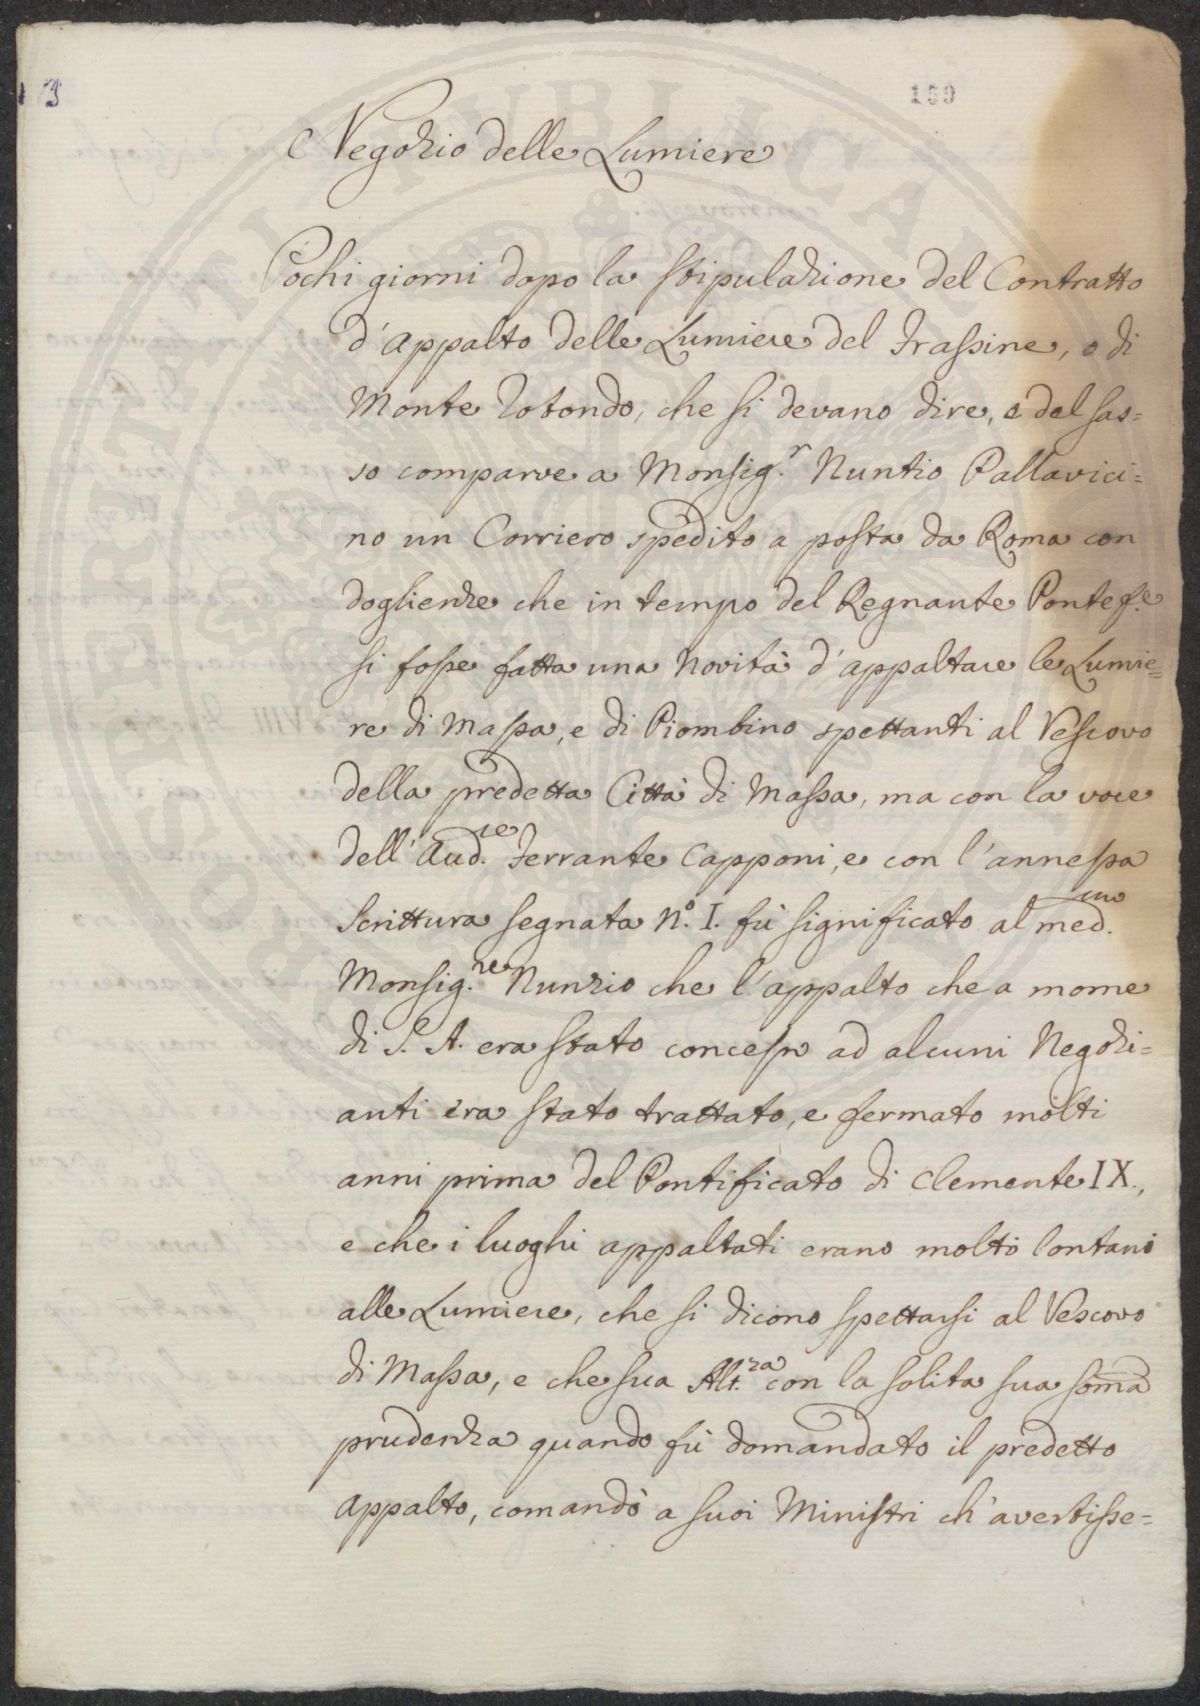 3
159
Negozio delle Lumiere
Pochi giorni dopo la stipulazione del Contratto
d'Appalto delle Lumiere del Frassine, o di
Monte Rotondo, che si devano dire, e del Sas=
so comparve a Monsig.r Nuntio Pallavici=
no un Corriero spedito a posta da Roma con
doglienze che in tempo del Regnante Pontef.e
si fosse fatta una novità d'appaltare le Lumie=
re di Massa, e di Piombino spettanti al Vescovo
della predetta Città di Massa, ma con la voce
dell'Aud.re Ferrante Capponi, e con l'annessa
scrittura segnata N.o I. fù significato al med.mo
Monsig.re Nunzio che l'appalto che a nome
di S. A. era stato concesso ad alcuni Negozi=
anti era stato trattato, e fermato molti
anni prima del Pontificato di Clemente IX.,
e che i luoghi appaltati erano molto lontani
alle Lumiere, che si dicono spettarsi al Vescovo
di Massa, e che sua Alt.za con la solita sua soma
prudenza quando fù domandato il predetto
appalto, comandò a suoi Ministri ch'avertisse=